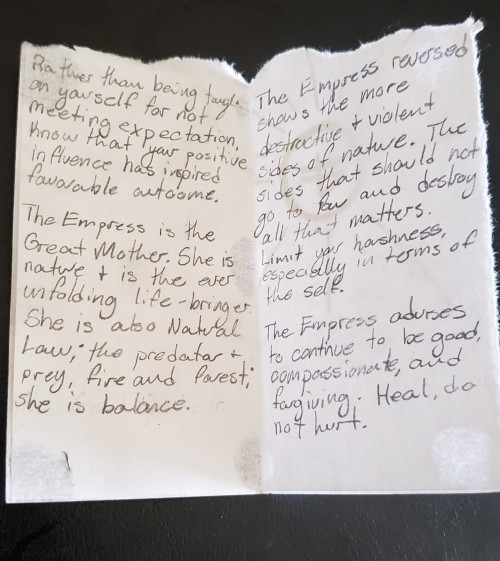 Rather than being tough
on yourself for not
meeting expectation,
Know that your positive
influence has inspired
favorable outcome.
The Empress is the
Great Mother. She is
nature + is the ever
unfolding life-bringer.
She is also Natural
Law; the predator +
prey, fire and forest;
she is balance.
The Empress reversed
shows the more
destructive + violent
sides of nature. The
sides that should not
go to far and destroy
all that matters.
Limit your harshness,
especially in terms of
the self.
The Empress advises
to continue to be good,
compassionate, and
forgiving. Heal, do
not hurt.